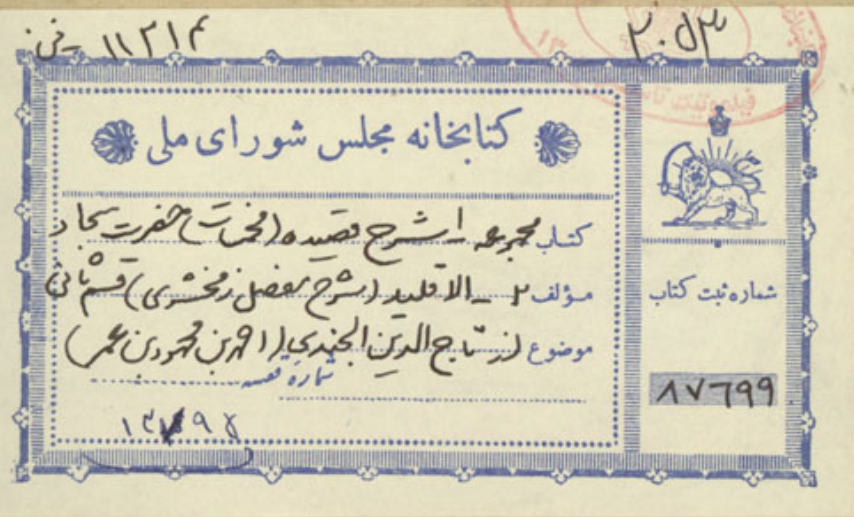 ۱۱۲۱۴ - فن
۲۰۵۳
کتابخانه مجلس شورای ملی
کتاب مجموعه ۱ - شرح قصیده (مخمسات) حضرت سجاد
مؤلف ۲ - الاقلید (شرح مفصل زمخشری) قسم ثانی
موضوع از تاج الدین الجندی (احمد بن محمود بن عمر)
شماره قفسه
۱۳۷۹۵
شماره ثبت کتاب
۸۷۶۹۹